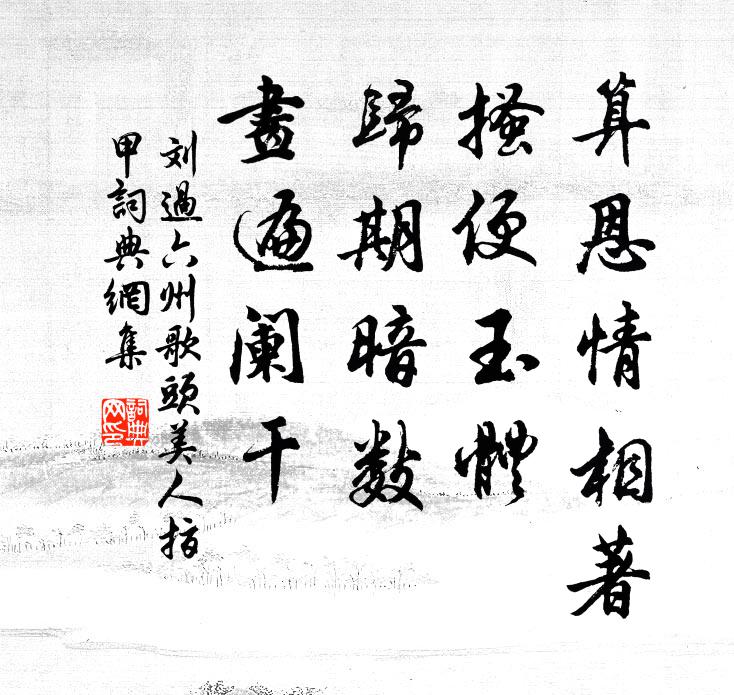 算恩情相著
搔便玉體
歸期暗數
畫遍阑干
刘過六州歌頭美人指
甲詞典網集
詞典網印